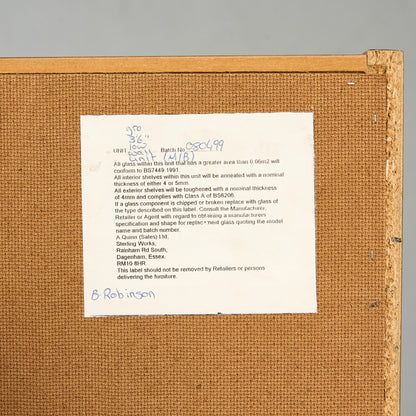 36"
low
wall
UNIT unit (M/R) Batch No 080499
All glass within this unit that has a greater area than 0.06m2 will
conform to BS7449 1991.
All interior shelves within this unit will be annealed with a nominal
thickness of either 4 or 5mm.
All exterior shelves will be toughened with a nominal thickness
of 4mm and complies with Class A of BS6206.
If a glass component is chipped or broken replace with glass of
the type described on this label. Consult the Manufacturer,
Retailer or Agent with regard to obtaining a manufacturers
specification and shape for replacement glass quoting the model
name and batch number.
A Quinn (Sales) Ltd,
Sterling Works,
Rainham Rd South,
Dagenham, Essex
RM10 8HR
This label should not be removed by Retailers or persons
delivering the furniture.
B. Robinson